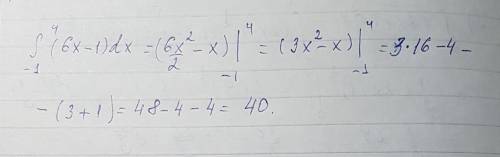 ∫₋₁⁴ (6x-1)dx = (6x²/2 - x)|₋₁⁴ = (3x²-x)|₋₁⁴ = 3·16-4-
-(3+1) = 48-4-4 = 40.